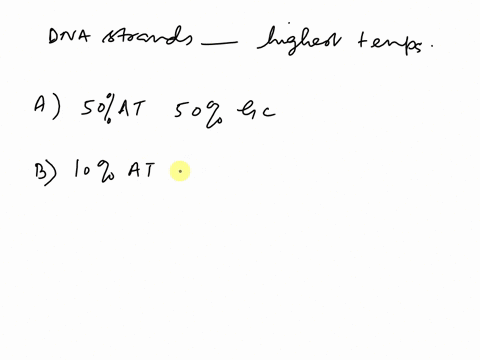 DNA strands — highest temps.
A) 50% AT 50% GC
B) 10% AT